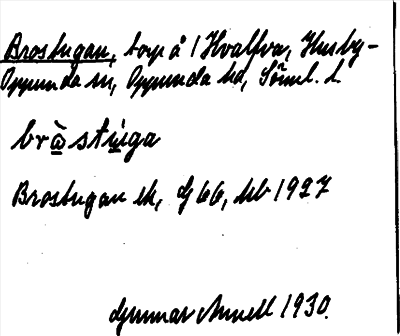 Brostugan, torp å 1 Hvalfva, Husby-
Oppunda sn, Oppunda hd, Söml. L
bròstu̲ga
Brostugan ek, dg 66, hb 1927
Gunnar Annell 1930.